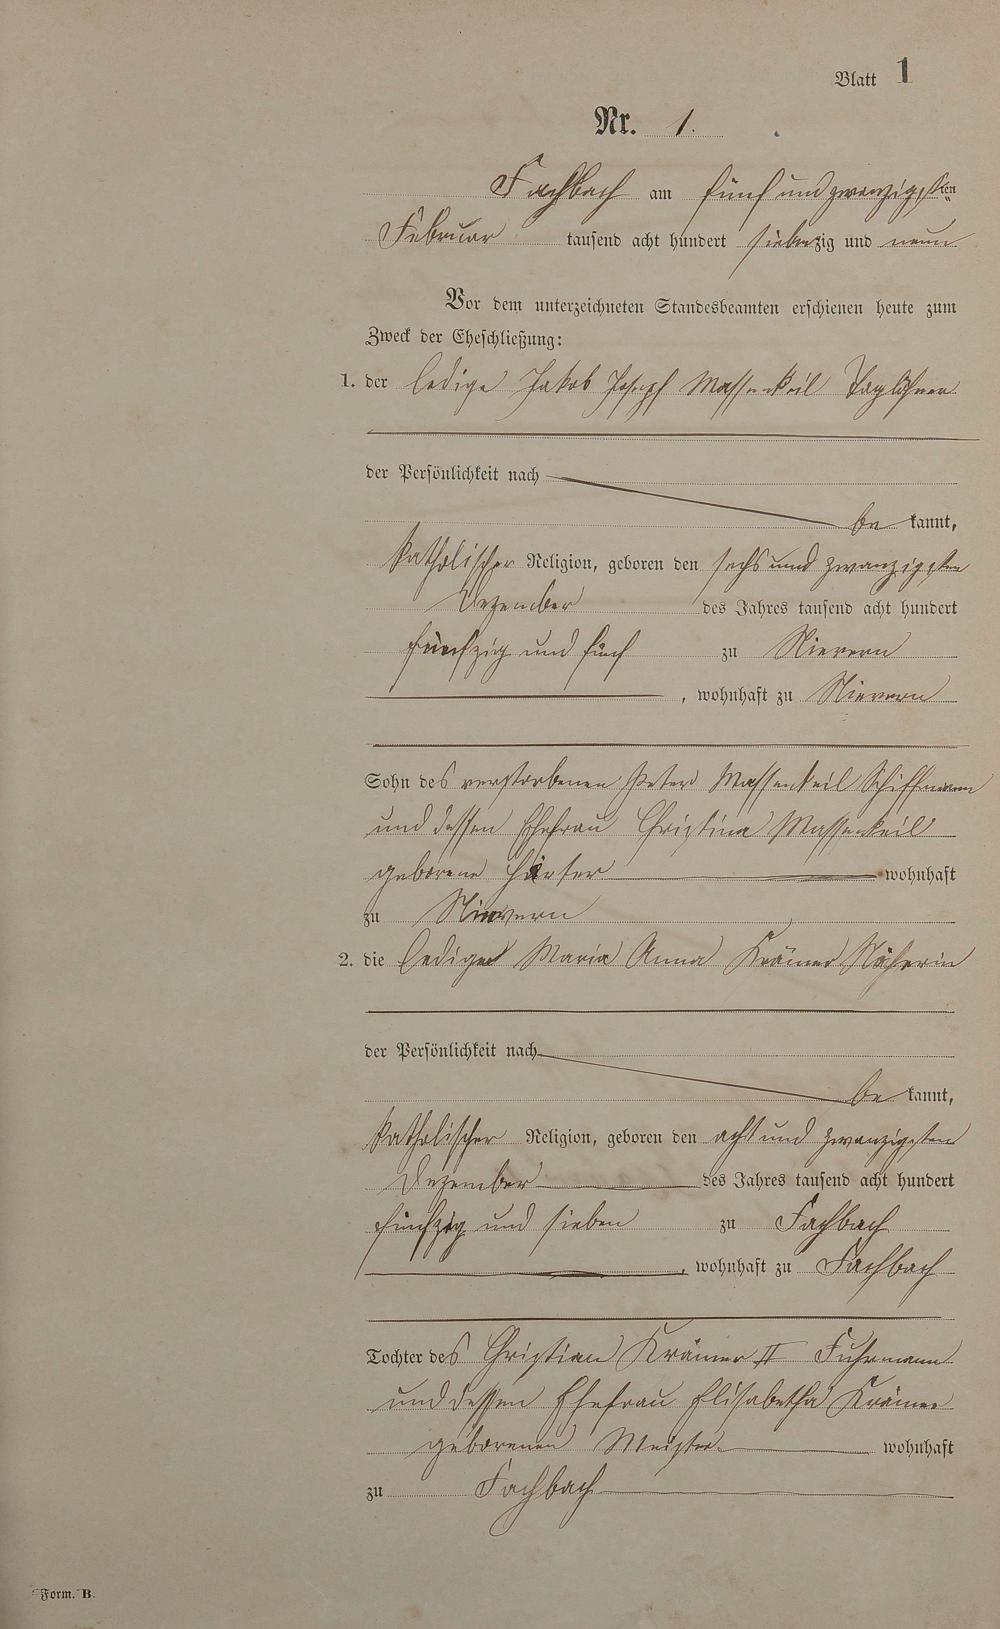 Blatt 1
Nr. 1.
Fachbach am fünf und zwanzigsten
Februar tausend acht hundert siebenzig und neun
Vor dem unterzeichneten Standesbeamten erschienen heute zum
Zweck der Eheschließung:
1. der ledige Jakob Joseph Massenkeil Taglöhner
der Persönlichkeit nach
be kannt,
katholischer Religion, geboren den sechs und zwanzigsten
Dezember des Jahres tausend acht hundert
fünfzig und fünf zu Nievern
, wohnhaft zu Nievern
Sohn des verstorbenen Peter Massenkeil Schiffmann
und dessen Ehefrau Christina Massenkeil
geborene wohnhaft
zu Nievern
2. die ledige Maria Anna Krämer Näherin
der Persönlichkeit nach
be kannt,
katholischer Religion, geboren den acht und zwanzigsten
Dezember des Jahres tausend acht hundert
fünfzig und sieben zu Fachbach
, wohnhaft zu Fachbach
Tochter des Christian Krämer II Fuhrmann
und dessen Ehefrau Elisabetha Krämer
geborenen Meister wohnhaft
zu Fachbach
Form. B.